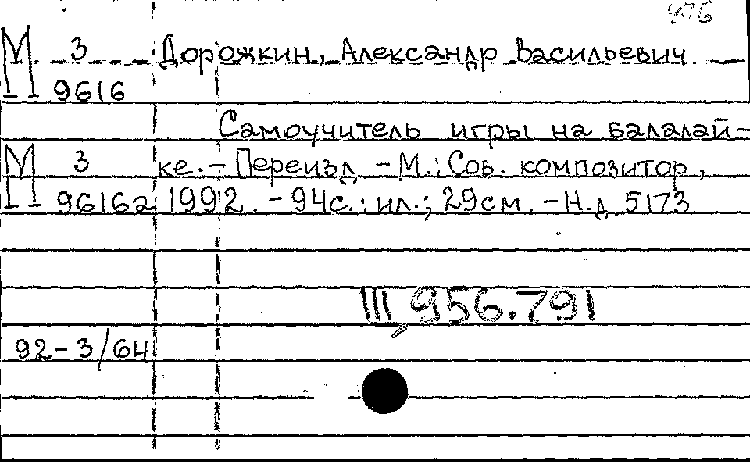 976
М 3 Дорожкин, Александр Васильевич
9616
Самоучитель игры на балалай-
М 3 ке. - Переизд. - М.: Сов. композитор,
9616а 1992. - 94с.: ил.; 29см. - Н.д. 5173
III, 956.791
92-3/64